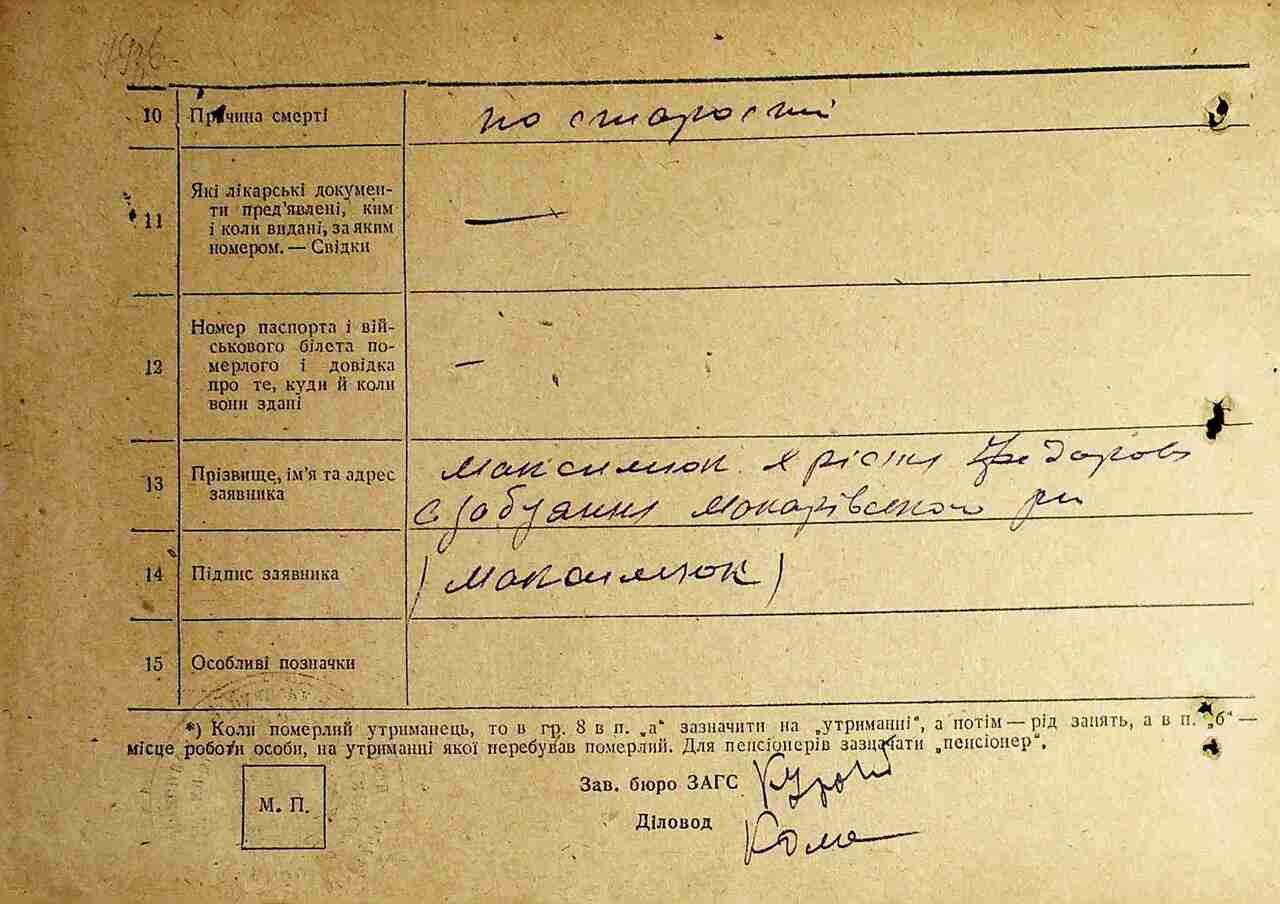 10 Причина смерті по старости
11 Які лікарські докумен-
ти пред'явлені, ким
і коли видані, за яким
номером. — Свідки —
12 Номер паспорта і вій-
ськового білета по-
мерлого і довідка
про те, куди й коли
вони здані —
13 Прізвище, ім'я та адрес
заявника
Максимюк Хрістя Федоров
с Макарівского рн
14 Підпис заявника (Максимюк)
15 Особливі позначки
*) Коли померлий утриманець, то в гр. 8 в п. „а“ зазначити на „утриманні“, а потім — рід занять, а в п. „б“ —
місце роботи особи, на утриманні якої перебував померлий. Для пенсіонерів зазначати „пенсіонер“.
Зав. бюро ЗАГС
М. П.
Діловод